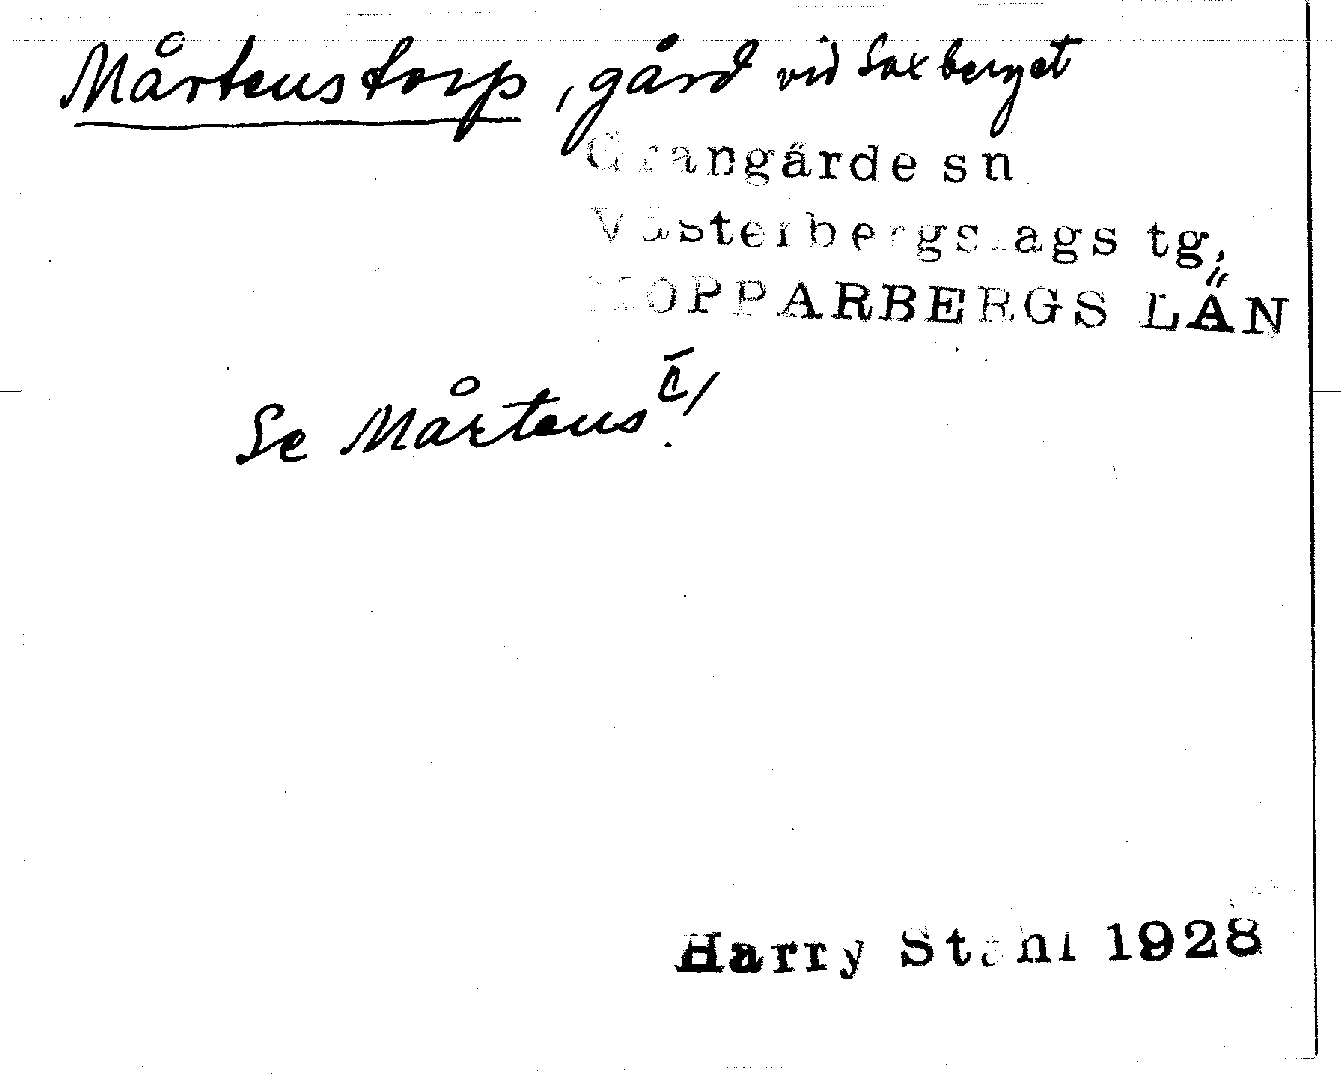 Mårtenstorp, gård vid Saxberget
Grangärde sn
Västerbergslags tg,
KOPPARBERGS LÄN
Se Mårtens
Harry Ståhl 1928